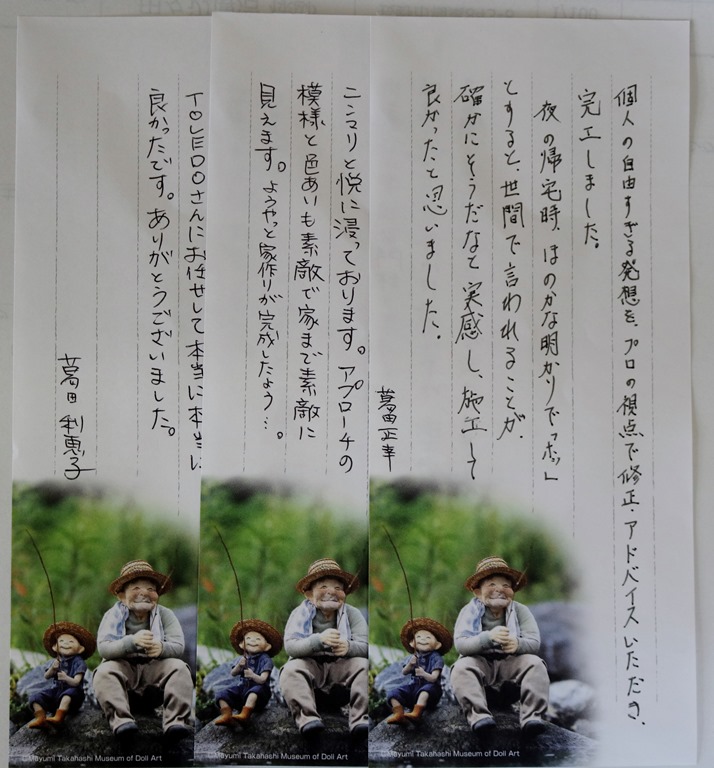 個人の自由すぎる発想を、プロの視点で修正・アドバイスいただき、
完工しました。
夜の帰宅時、ほのかな明かりで「ホッ」
とすると、世間で言われることが、
確かにそうだなと実感し、施工して
良かったと思いました。
正幸
ニンマリと悦に浸っております。アプローチの
模様と色あいも素敵で家まで素敵に
見えます。ようやっと家作りが完成したよう…。
TOLEDOさんにお任せして本当に本当に
良かったです。ありがとうございました。
利恵子
©Mayumi Takahashi Museum of Doll Art
©Mayumi Takahashi Museum of Doll Art
©Mayumi Takahashi Museum of Doll Art